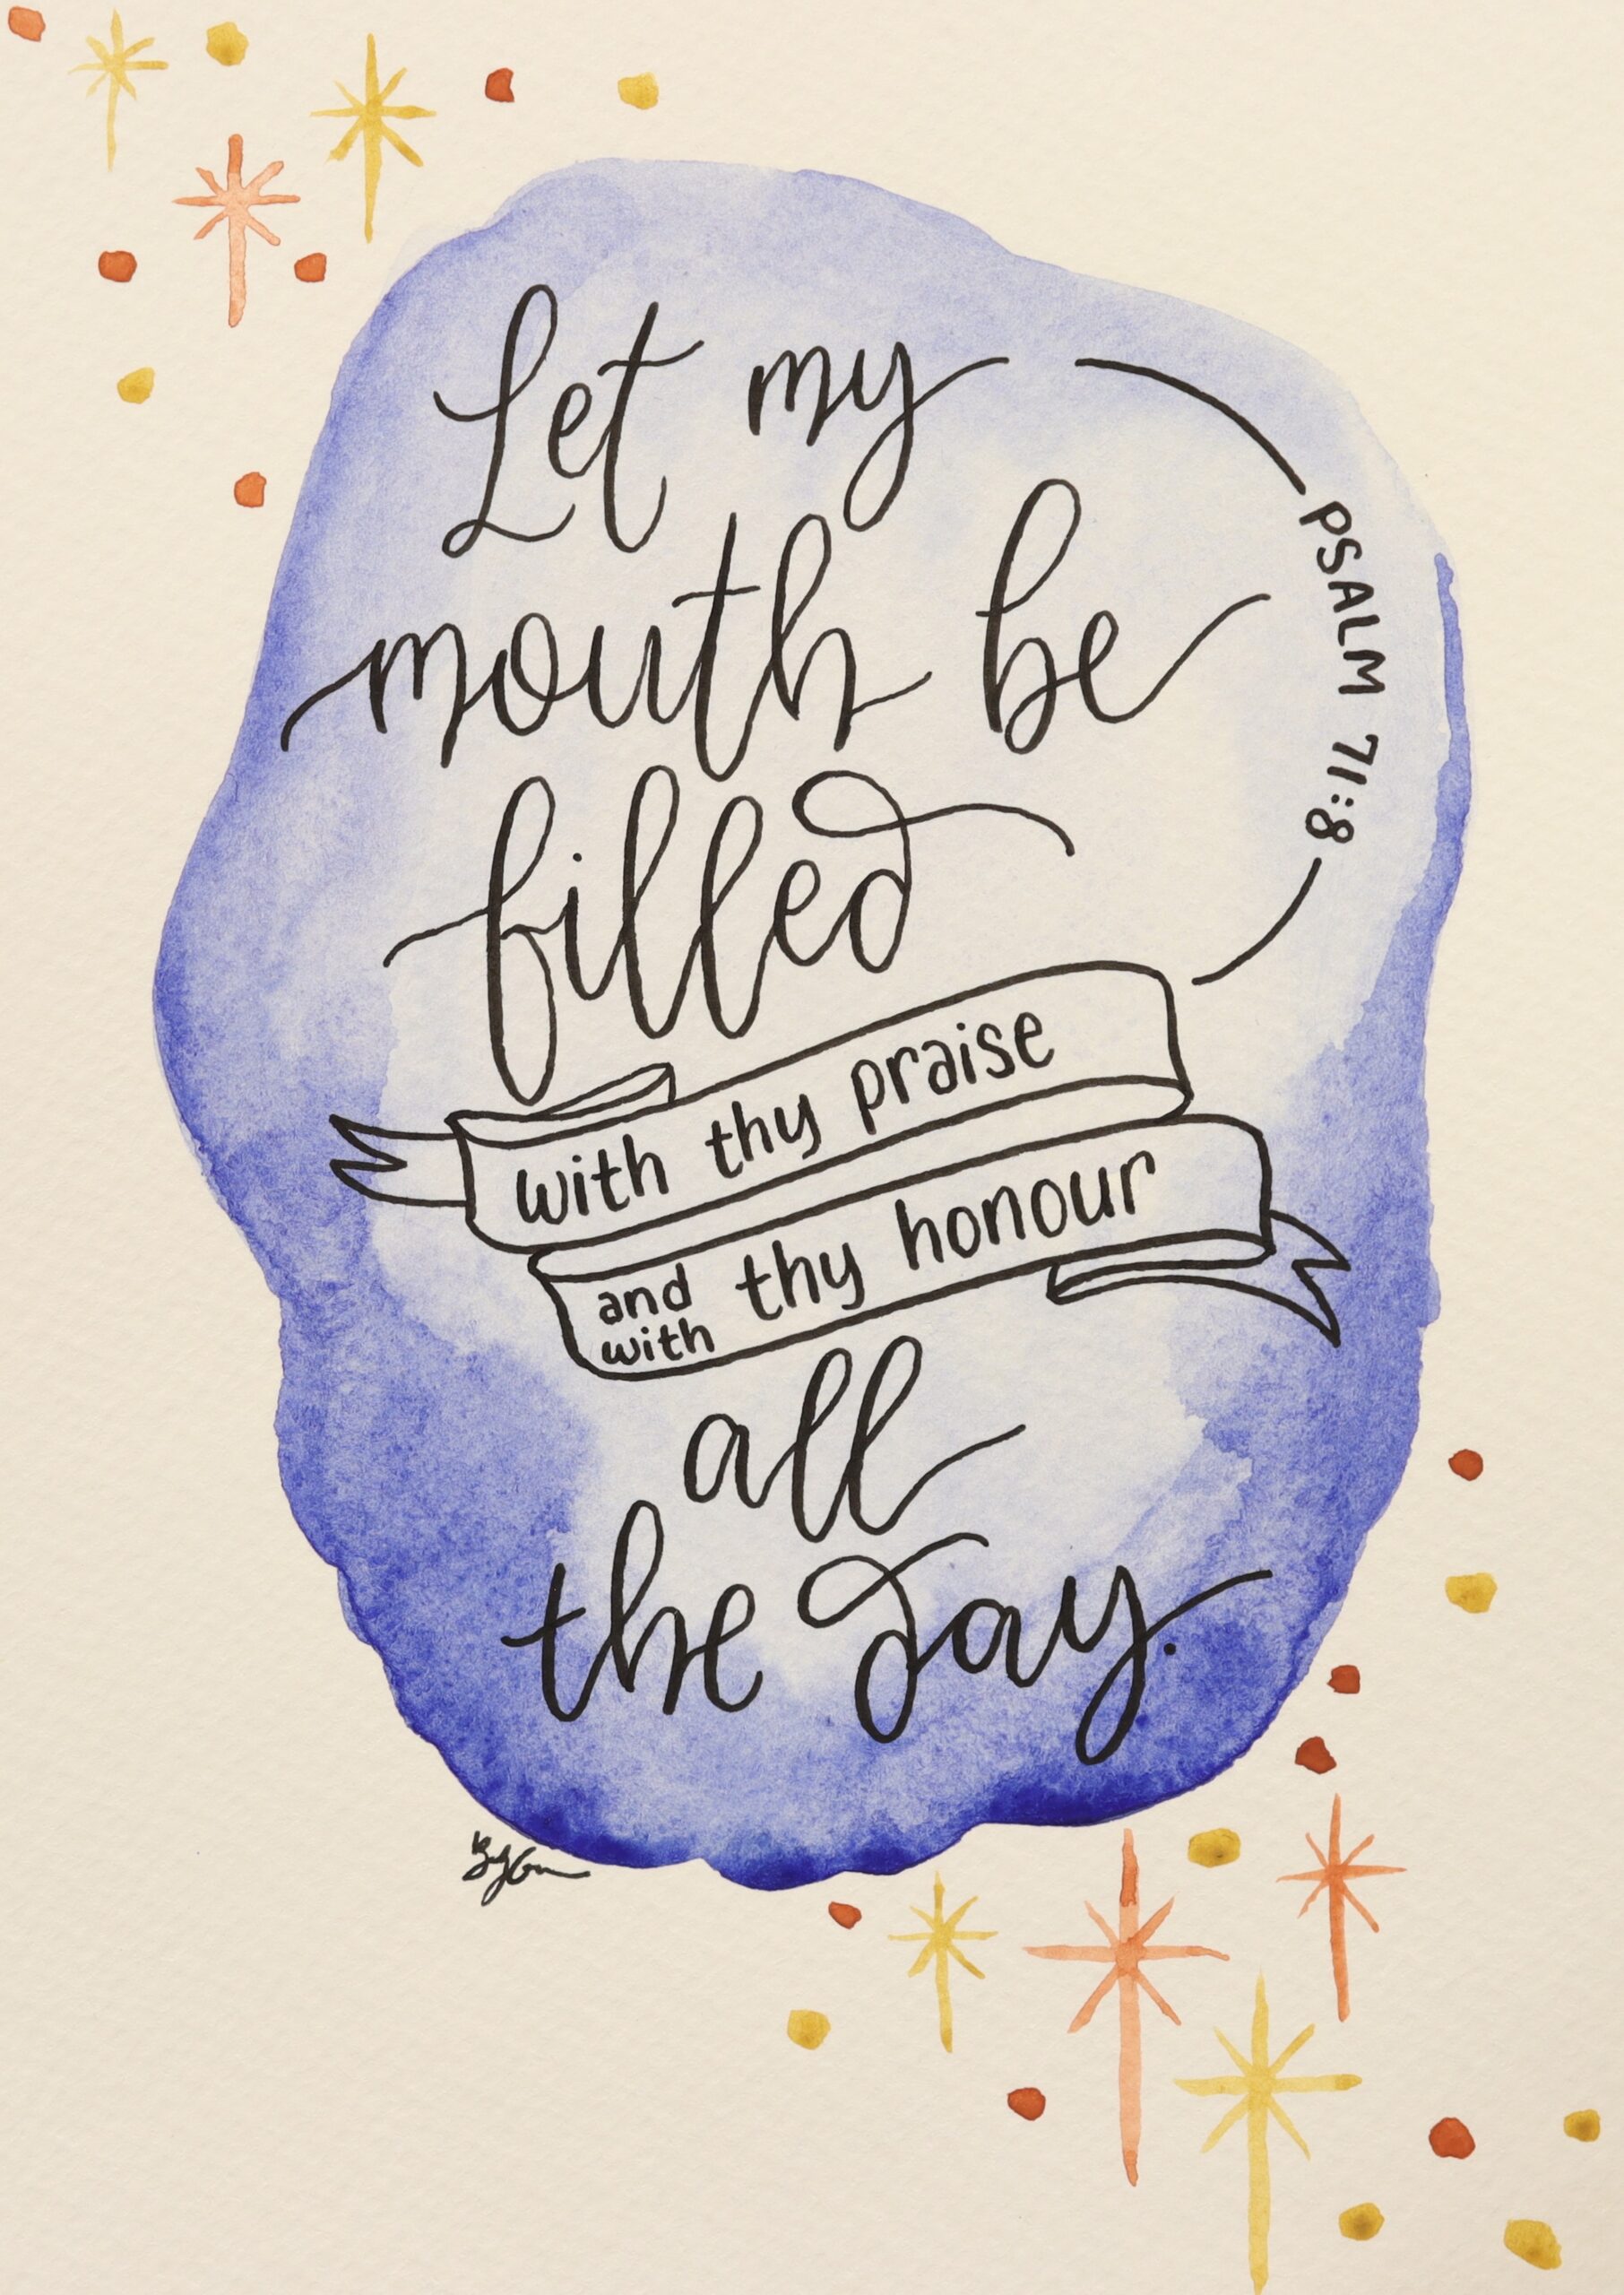 Let my
mouth be
filled
with thy praise
and with thy honour
all
the day.
PSALM 71:8